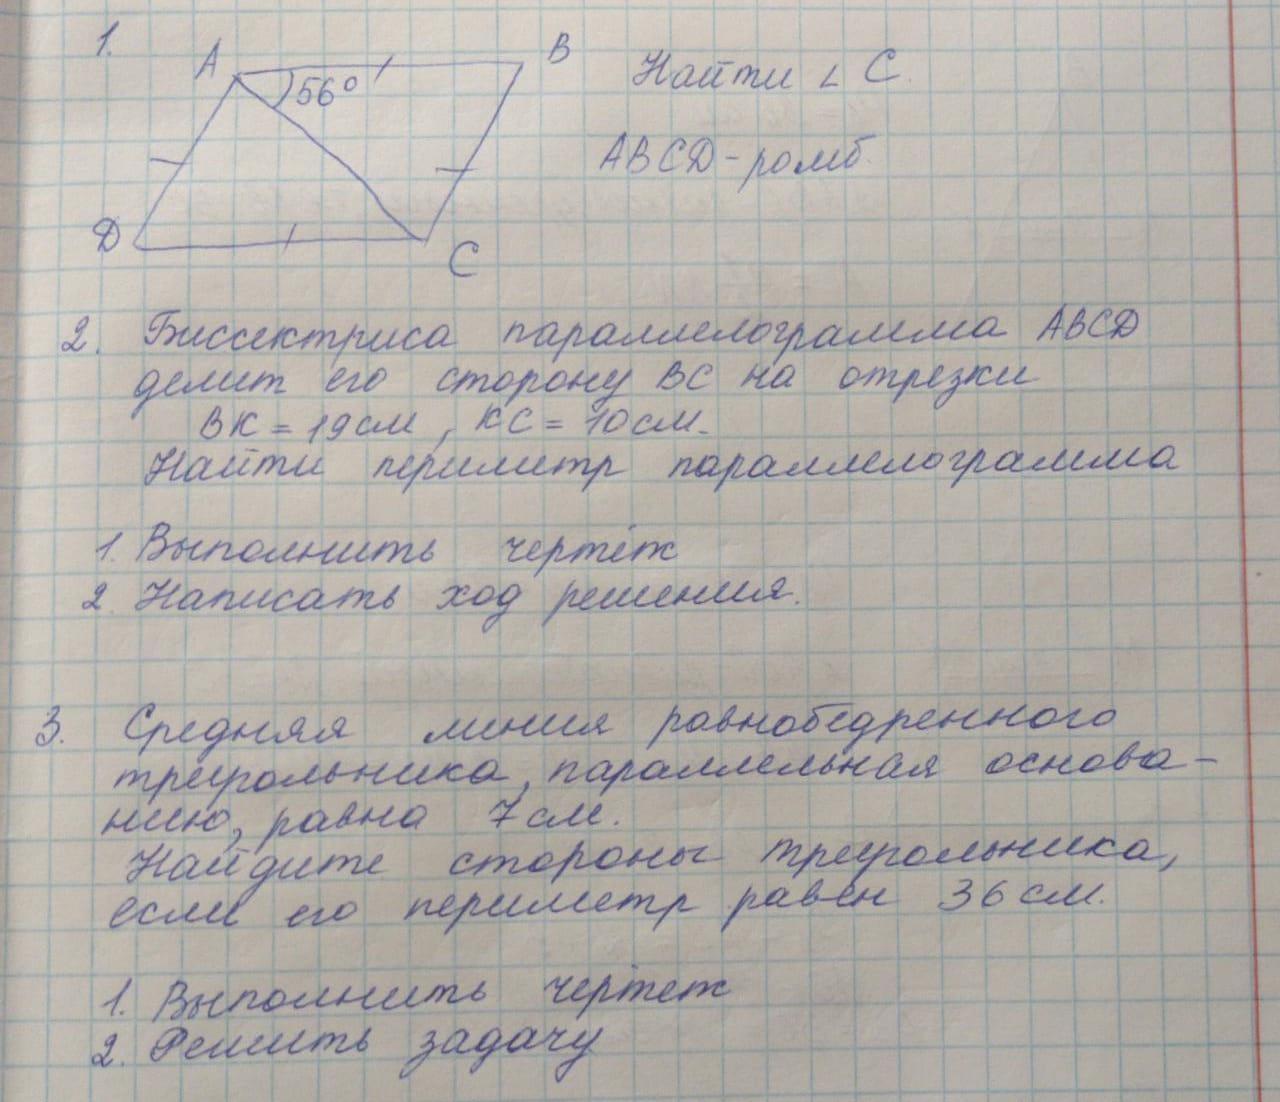 1.
A
B
56°
D
C
Найти ∠ C.
ABCD - ромб.
2. Биссектриса параллелограмма ABCD
делит его сторону BC на отрезки
BK = 19 см, KC = 10 см.
Найти периметр параллелограмма
1. Выполнить чертёж
2. Написать ход решения.
3. Средняя линия равнобедренного
треугольника, параллельная основа-
нию, равна 7 см.
Найдите стороны треугольника,
если его периметр равен 36 см.
1. Выполнить чертеж
2. Решить задачу